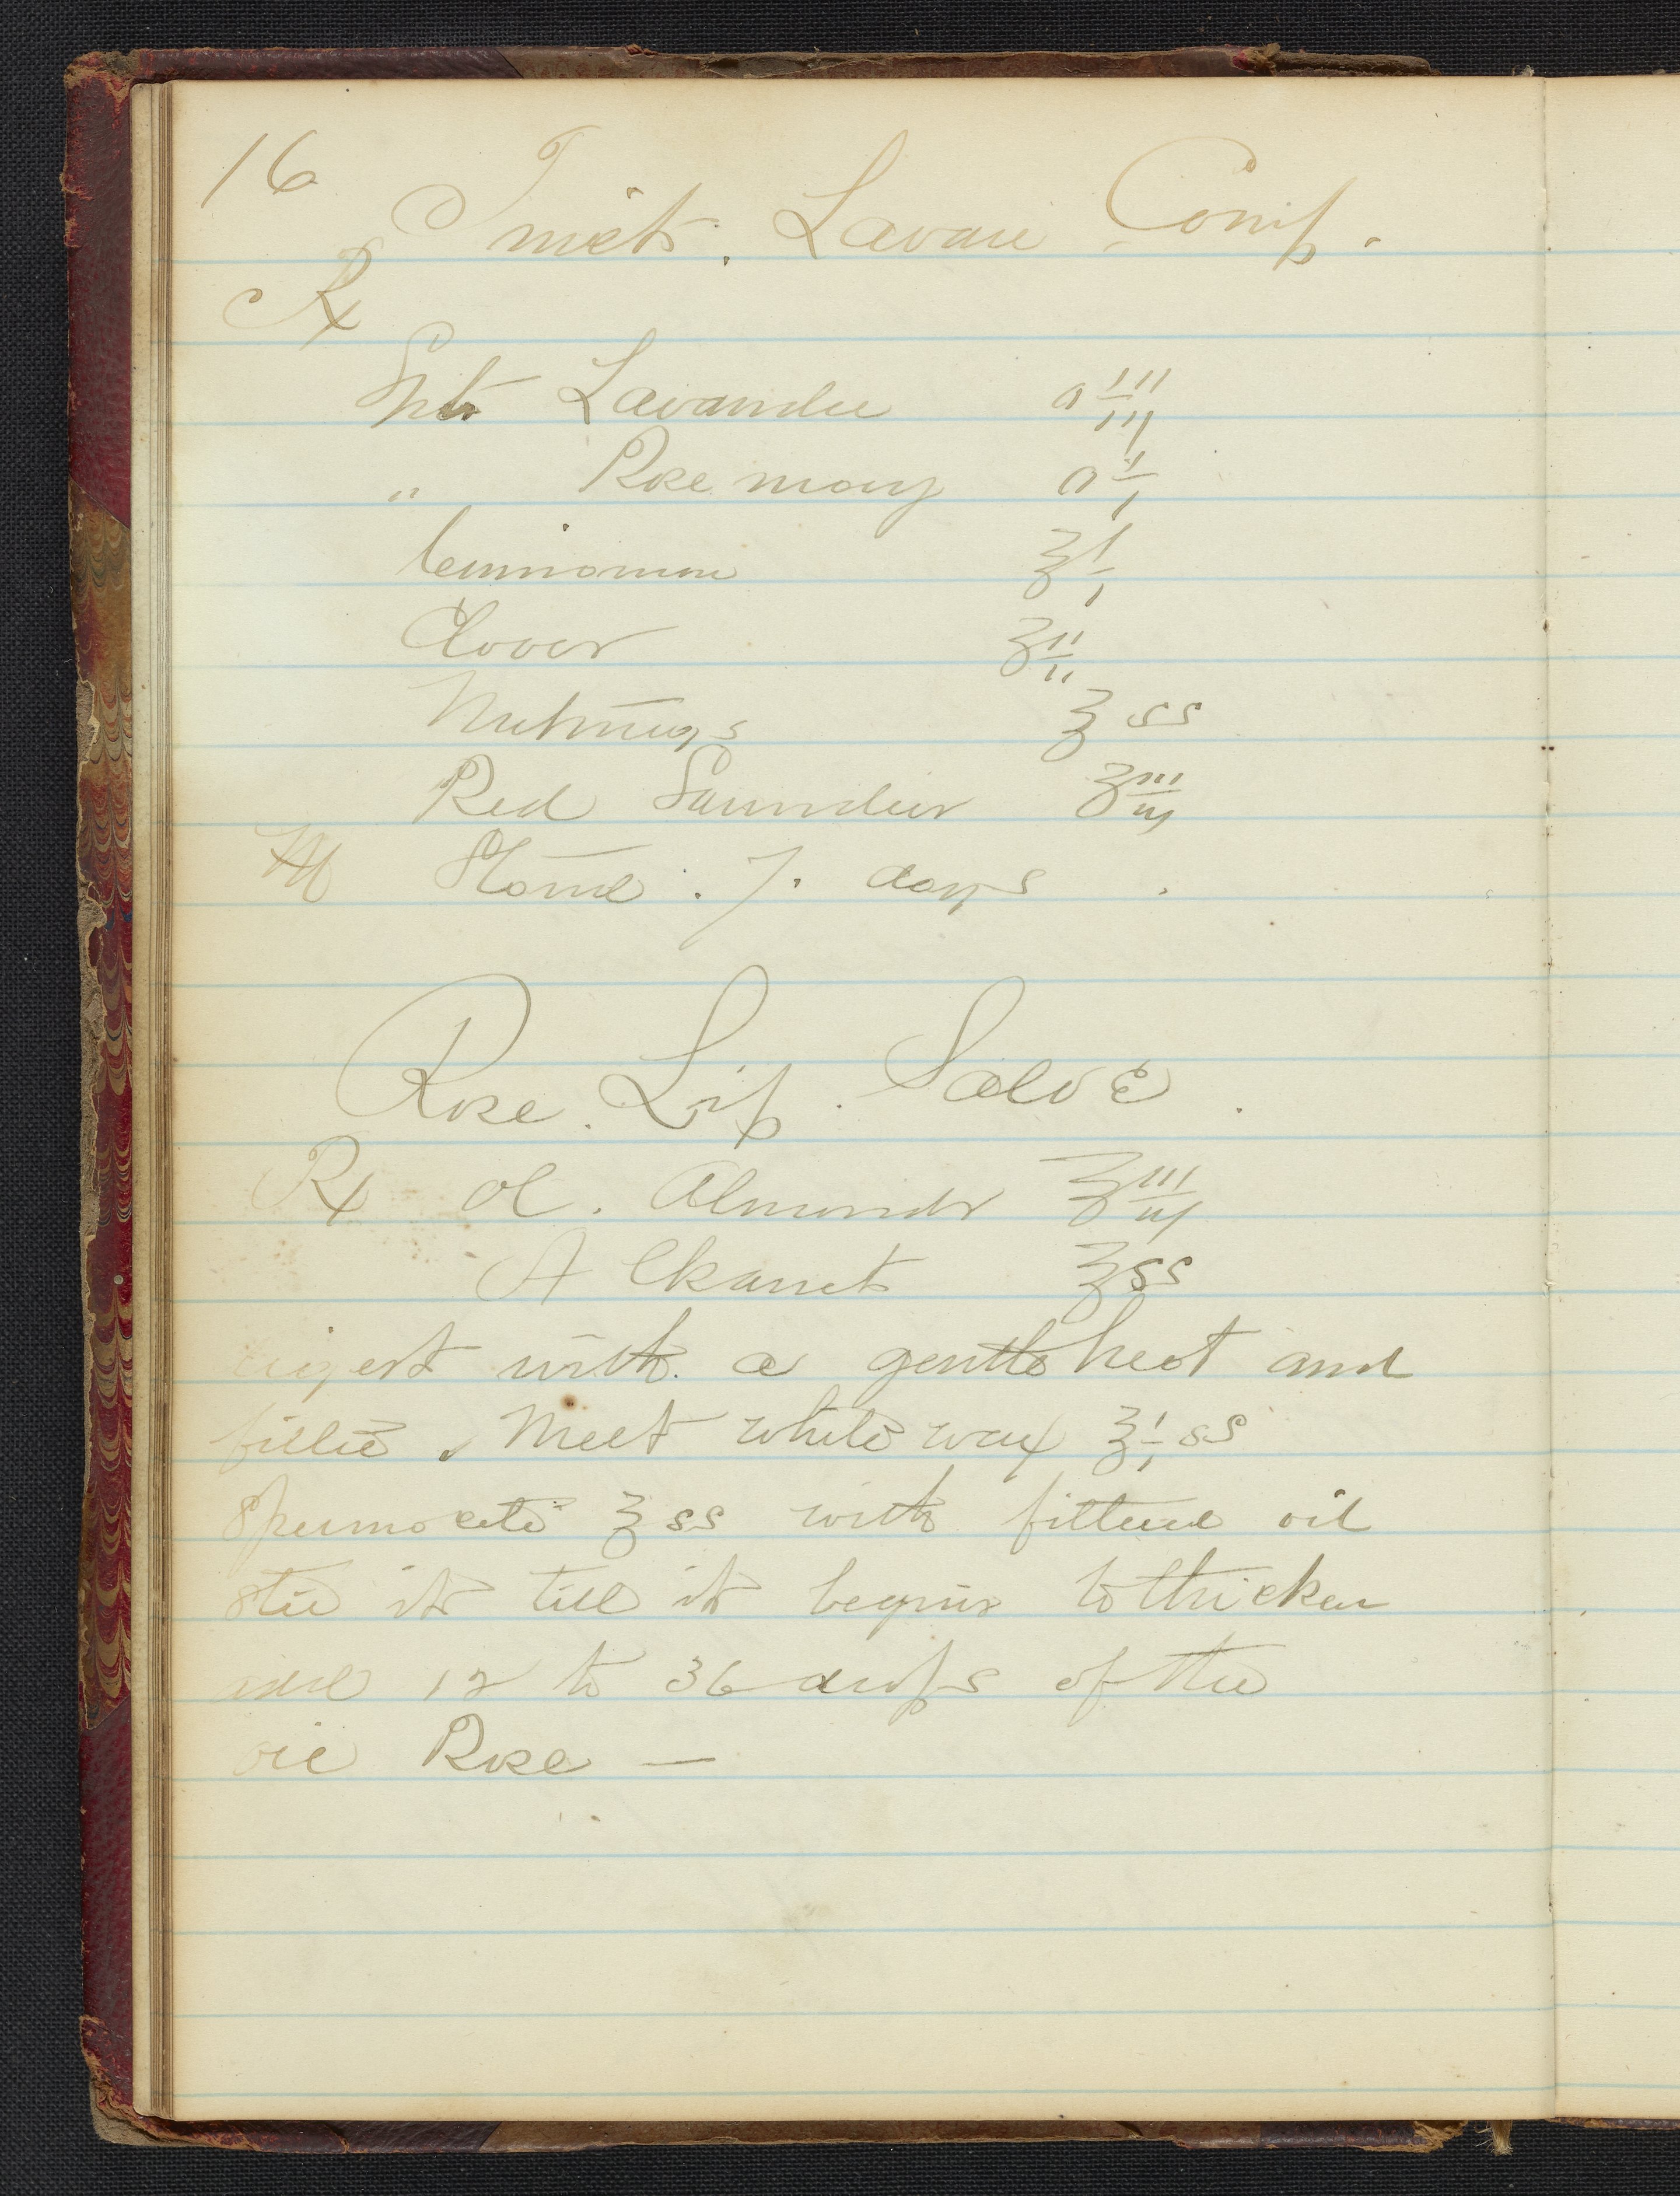 16
Tinct. Lavan Comp.
Rx
Spts Lavandu O iii
" Rosemary O i
Cinnomon ℥ i
Clover ʒ ii
Nutmegs ℥ ss
Red Saunders ʒ iii
M Stand . 7 . days .
Rose . Lip . Salve .
Rx Ol . Almonds ℥ iii
Alkanet ℥ ss
digest with a gentle heat and
filter . Melt white wax ℥ i ss
Spermoceti ℥ ss with filtered oil
stir it till it begins to thicken
add 12 to 36 drops of the
oil Rose —